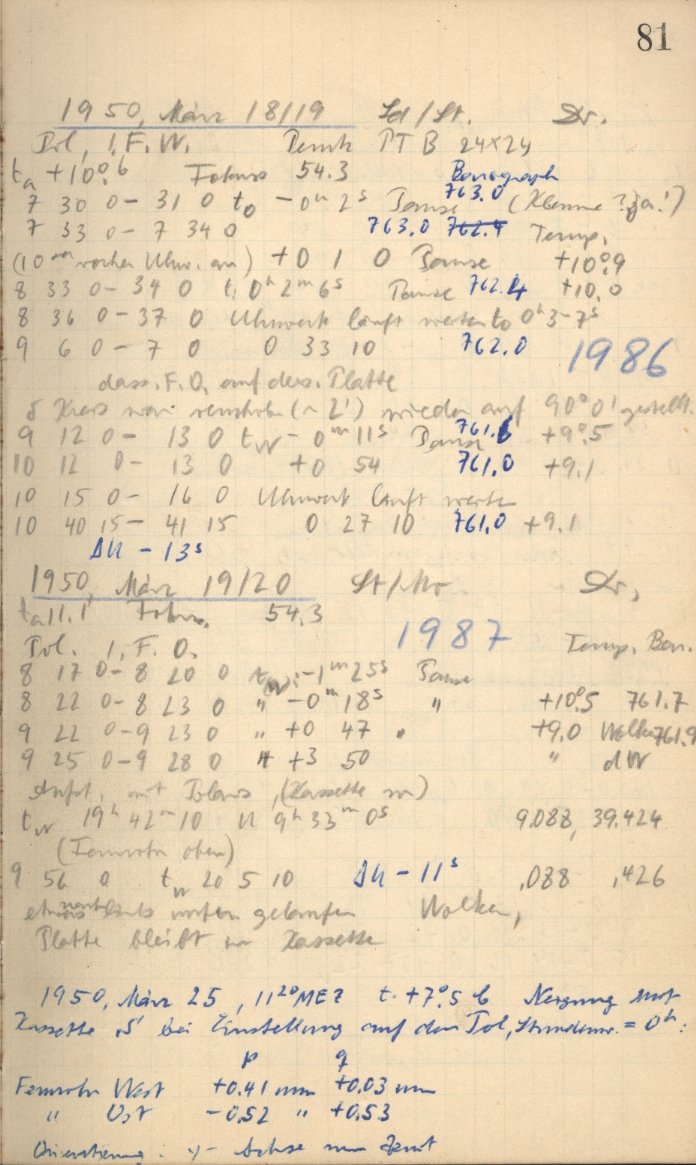 81
1950, März 18/19 Sd/St. Dr.
Pol, 1, F. W. Perutz PT B 24x24
ta +10°,6 Fokus 54.3 Barograph
7 30 0 – 31 0 t0 – 0m 2s Pause 763.0 (Klemme ? ja!)
7 33 0 – 7 34 0 763.0 762.4 Temp.
(10m vorher Uhrw. an) +0 1 0 Pause +10°.9
8 33 0 – 34 0 t, 0h 2m 6s Pause 762.4 +10.0
8 36 0 – 37 0 Uhrwerk läuft weiter t0 0h 3 – 7s
9 6 0 – 7 0 0 33 10 762.0 1986
dass. F. O, auf ders. Platte
δ Kreis war verschoben (~ 2') wieder auf 90°0' gestellt.
9 12 0 – 13 0 tW – 0m 11s Pause 761.6 +9°.5
10 12 0 – 13 0 +0 54 761.0 +9.1
10 15 0 – 16 0 Uhrwerk läuft weiter
10 40 15 – 41 15 0 27 10 761.0 +9.1
ΔU – 13s
1950, März 19/20 St/ Dr,
ta 11.1 Fokus, 54.3
1987
Pol. 1, F. O. Temp. Bar.
8 17 0 – 8 20 0 tW: –1m 25s Pause
8 22 0 – 8 23 0 " –0m 18s " +10°.5 761.7
9 22 0 – 9 23 0 " +0 47 " +9.0 Wolken 761.9
9 25 0 – 9 28 0 " +3 50 "
Aufst. mit (Kassette
tW 19h 42m 10 U 9h 33m 0s 9.088, 39.424
(Fernrohr oben)
9 56 0 tW 20 5 10 ΔU – 11s ,088 ,426
etwas gelaufen Wolken,
Platte bleibt in Kassette
1950, März 25, 11 20 MEZ t. +7°.5 Neigung mit
Kassette bei Einstellung auf den Pol, Stundenw. = 0h:
p q
Fernrohr West +0.41 mm +0.03 mm
" Ost –0.52 " +0.53
Orientierung: y – Achse zum Zenit